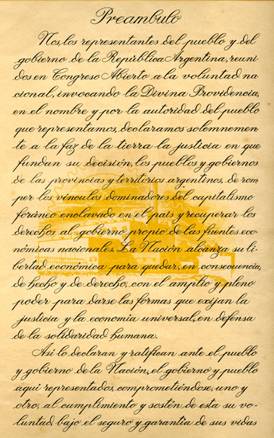 Preambulo
Nos, los representantes del pueblo y del
gobierno de la República Argentina, reuni
dos en Congreso Abierto a la voluntad na
cional, invocando la Divina Providencia,
en el nombre y por la autoridad del pueblo
que representamos, declaramos solemnemen
te a la faz de la tierra la justicia en que
fundan su decisión, los pueblos y gobiernos
de las provincias y territorios argentinos, de rom
per los vínculos dominadores del capitalismo
foráneo enclavado en el país y recuperar los
derechos al gobierno propio de las fuentes eco
nómicas nacionales. La Nación alcanza su li
bertad económica para quedar, en consecuencia,
de hecho y de derecho, con el amplio y pleno
poder para darse las formas que exijan la
justicia y la economía universal, en defensa
de la solidaridad humana.
Así lo declaran y ratifican ante el pueblo
y gobierno de la Nación, el gobierno y pueblo
aquí representados, comprometiéndose, uno y
otro, al cumplimiento y sostén de esta su vo-
luntad, bajo el seguro y garantía de sus vidas